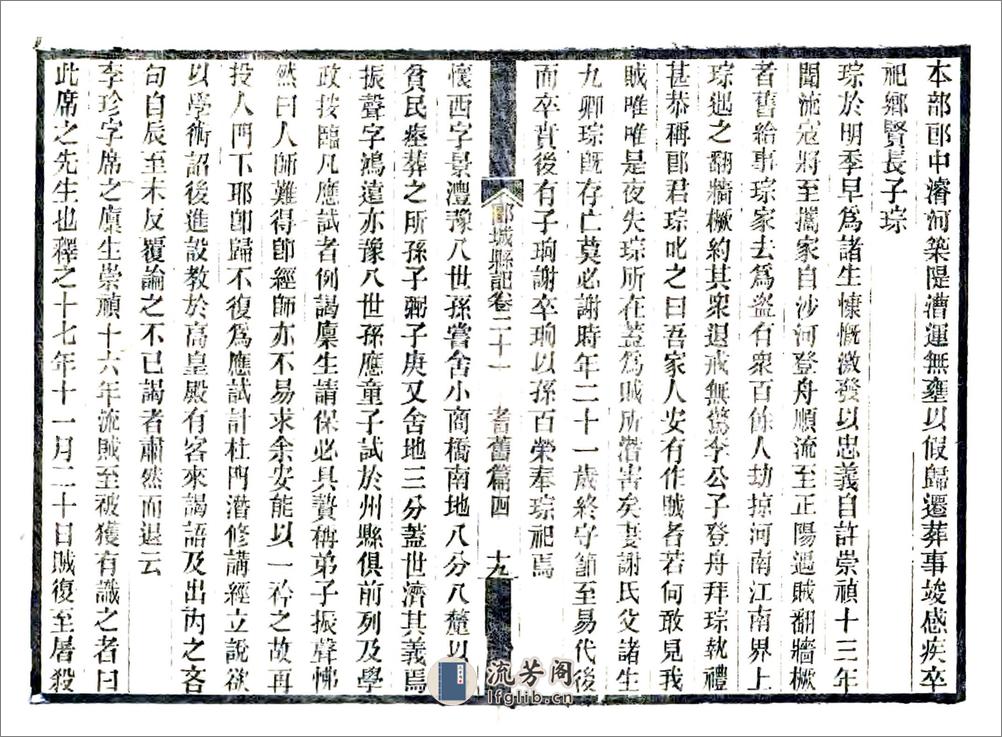 本部郎中濬河築隄漕運無壅以假歸遷葬事竣感疾卒
祀鄉賢長子琮
琮於明季早爲諸生慷慨激發以忠義自許崇禎十三年
聞流寇將至攜家自沙河登舟順流至正陽遇賊翻牆橛
者舊給事琮家去爲盜有衆百餘人劫掠河南江南界上
琮遇之翻牆橛約其衆退戒無驚李公子登舟拜琮執禮
甚恭稱郎君琮叱之曰吾家人安有作賊者若何敢見我
賊唯唯是夜失琮所在蓋爲賊所潛害矣妻謝氏父諸生
九卿琮旣存亡莫必謝時年二十一歲終守節至易代後
而卒賁後有子珣謝卒珣以孫百榮奉琮祀焉
郾城縣記卷二十一 耆舊篇四 九
懷西字景澧豫八世孫嘗舍小商橋南地八分八釐以
貧民瘞葬之所孫子弼子庚又舍地三分蓋世濟其義焉
振聲字鴻遠亦豫八世孫應童子試於州縣俱前列及學
政按臨凡應試者例謁廩生請保必具贄稱弟子振聲怫
然曰人師難得卽經師亦不易求余安能以一衿之故再
投人門下耶卽歸不復爲應試計杜門潛修講經立說欲
以學術詔後進設教於高皇殿有客來謁語及出內之吝
句自辰至未反覆論之不已謁者肅然而退云
李珍字席之廩生崇禎十六年流賊至被獲有識之者曰
此席之先生也釋之十七年十一月二十日賊復至屠殺
流芳阁
lfglib.cn